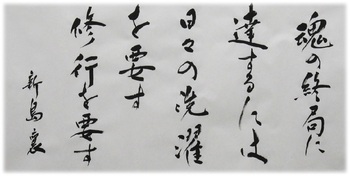 魂の終局に
達するには
日々の洗濯
を要す
修行を要す
新島襄